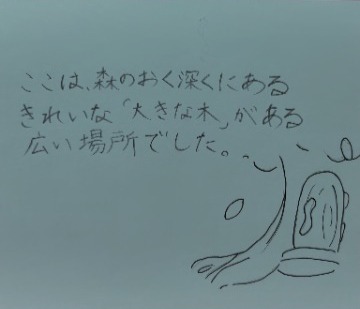 ここは、森のおく深くにある
きれいな「大きな木」がある
広い場所でした。